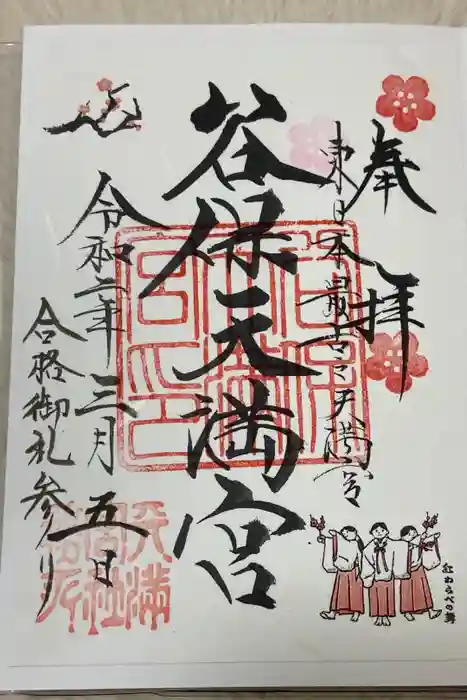 奉拝
東日本最古天満宮
谷保天満宮
令和二年三月五日
合格御礼参り
紅わらべの舞